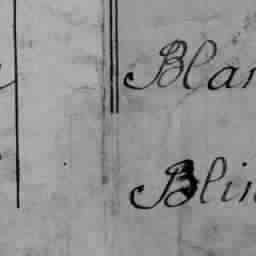 Blan
Blin